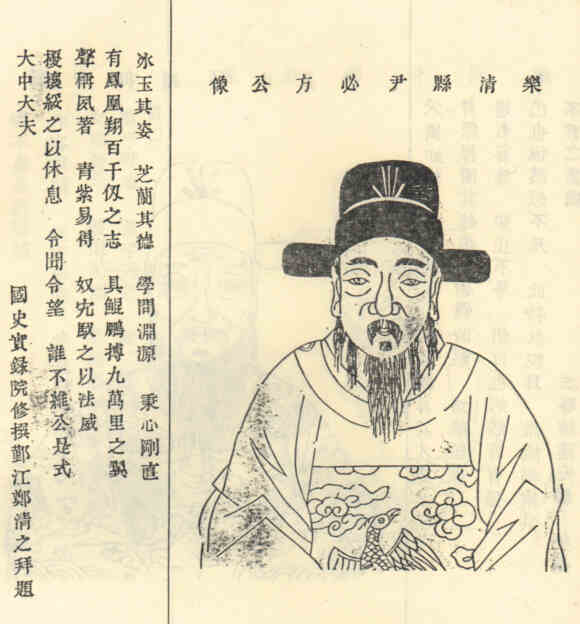 樂清縣尹必方公像
冰玉其姿 芝蘭其德 學問淵源 秉心剛直
有鳳凰翔百千仭之志 具鯤鵬摶九萬里之翼
聲稱夙著 青紫易得 奴宄馭之以法威
擾攘綏之以休息 令聞令望 誰不維公是式
大中大夫
國史實錄院修撰鄞江鄭清之拜題